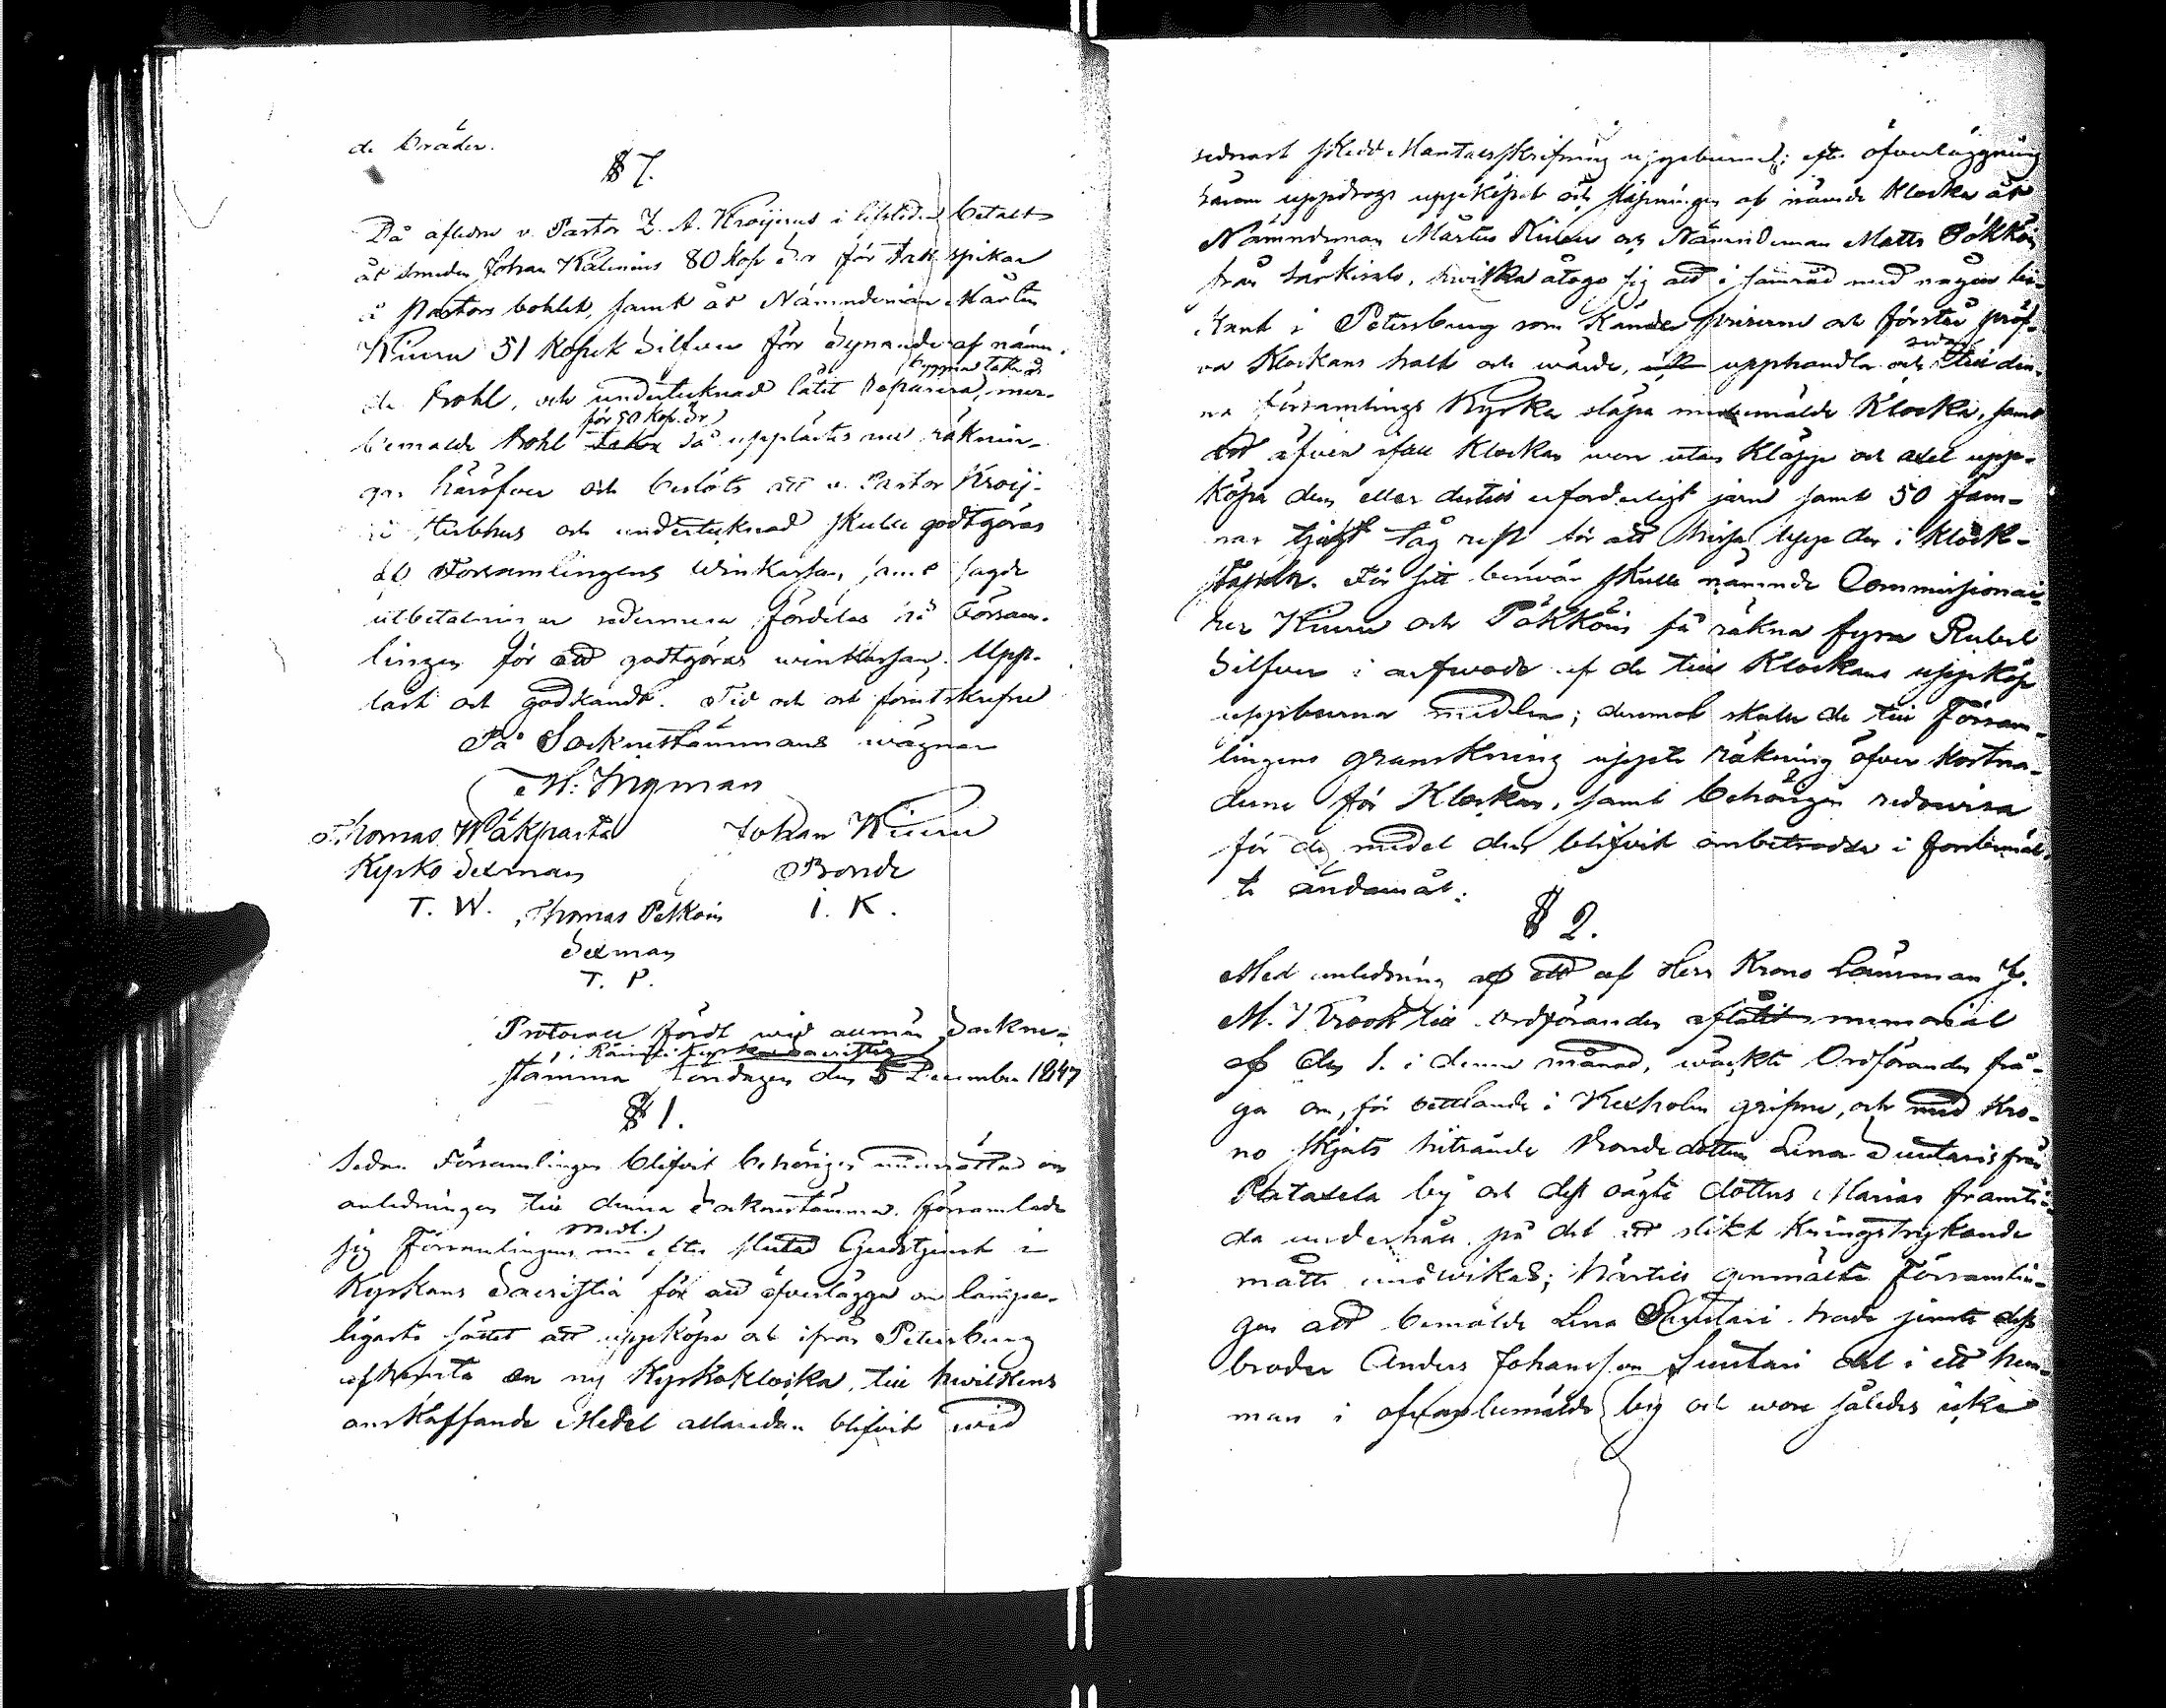 de bräder.
§ 7.
Då afledne v. Pastor Z. A. Kroijerus i lifstiden betalt
åt smeden Johan Kälenius 80 kop S:r för tak spikar
å Pastors bohlet, samt åt Nämndeman Mårten
Kiuru 51 Kopek Silfver för Synande af nämn-
de bohl, och undertecknad låtit reparera, mer-
byggnad taken å
bemälde bohl så upplästes nu räknin-
för 50 kop. S:r
gar häröfver och beslöts att v. Pastor Kroij-
ri Sterbhus och undertecknad skulle godtgöras
af Församlingens winkassan, samt sagde
utbetalningar sedermera fördelas på Försam-
lingen för att godtgöras winkassan. Upp-
läst och godkändt. Tid och ort förutskrefne
På Sockenstämmans wägnar
M: Ingman
Thomas Wäkparta Johan Kiuru
Kyrko Sexman Bonde
T. W. Thomas Pekkoin I. K.
Sexman
T. P.
Protocoll fördt wid allmän Sockne-
i Kyrkas sacristia
stämma Söndagen den 5 December 1847
§ 1.
Sedan Församlingen blifvit behörigen underrättad om
anledningen till denna Socknestämma, församlade
sig Församlingens efter slutad Gudstjenst i
medl.
Kyrkans Sacristia för att öfverlägga om lämpe-
ligaste sättet att uppköpa och ifrån Petersburg
afhemta en ny Kyrkoklocka, till hwilkens
anskaffande Medel allaredan blifvit wid
sednast skedd Mantalsskrifning uppeburne; efter öfverläggning
härom uppdrogs uppköpet och släpningen af nämde Klocka åt
Nämndeman Mårten Kiuru och Nämndeman Matts Pökköin
från Särkisalo, hwilka åtogo sig att i samråd med någon be-
kant i Petersburg som känder priserne och förstår pröf-
va Klockans halt och wärde, upphandla och till den-
sedan
na församlings Kyrka släpa merbemälde Klocka, samt
att äfven ifall Klockan wore utan Kläpp och axel upp-
köpa den eller dertill erforderligt järn samt 50 fam-
nar tjockt tåg rest för att hissa upp den i klock-
stapeln. För sitt beswär skulle nämnde Commissionai-
rer Kiuru och Pökköin få räkna fyra Rubel
Silfver i arfwode af de till Klockans uppköp
uppburna medlen; deremot skulle de till Försam-
lingens granskning uppte räkning öfver kostna-
derne för Klockan, samt behörigen redowisa
för de medel dem blifvit anbetrodde i förbemäl-
te ändamål.
§ 2.
Med anledning af ett af Herr Krono Länsman J.
M. Krook till Ordföranden aflåtit memorial
af den 1. i denne månad, wäckte Ordföranden frå-
ga om, för bettlande i Kexholm gripne, och med Kro-
no skjuts hitsände Bondedottren Lena Suutaris från
Ratasela by och dess oägta dotters Marias framti-
da underhåll på det att slikt Kringstrykande
måtte undwikas; härtill genmälte Församlin-
gen att bemälde Lena Suutari hade jemte dess
broder Anders Johansson Suutari del i ett hem-
man i ofvanbemälde by och wore således icke